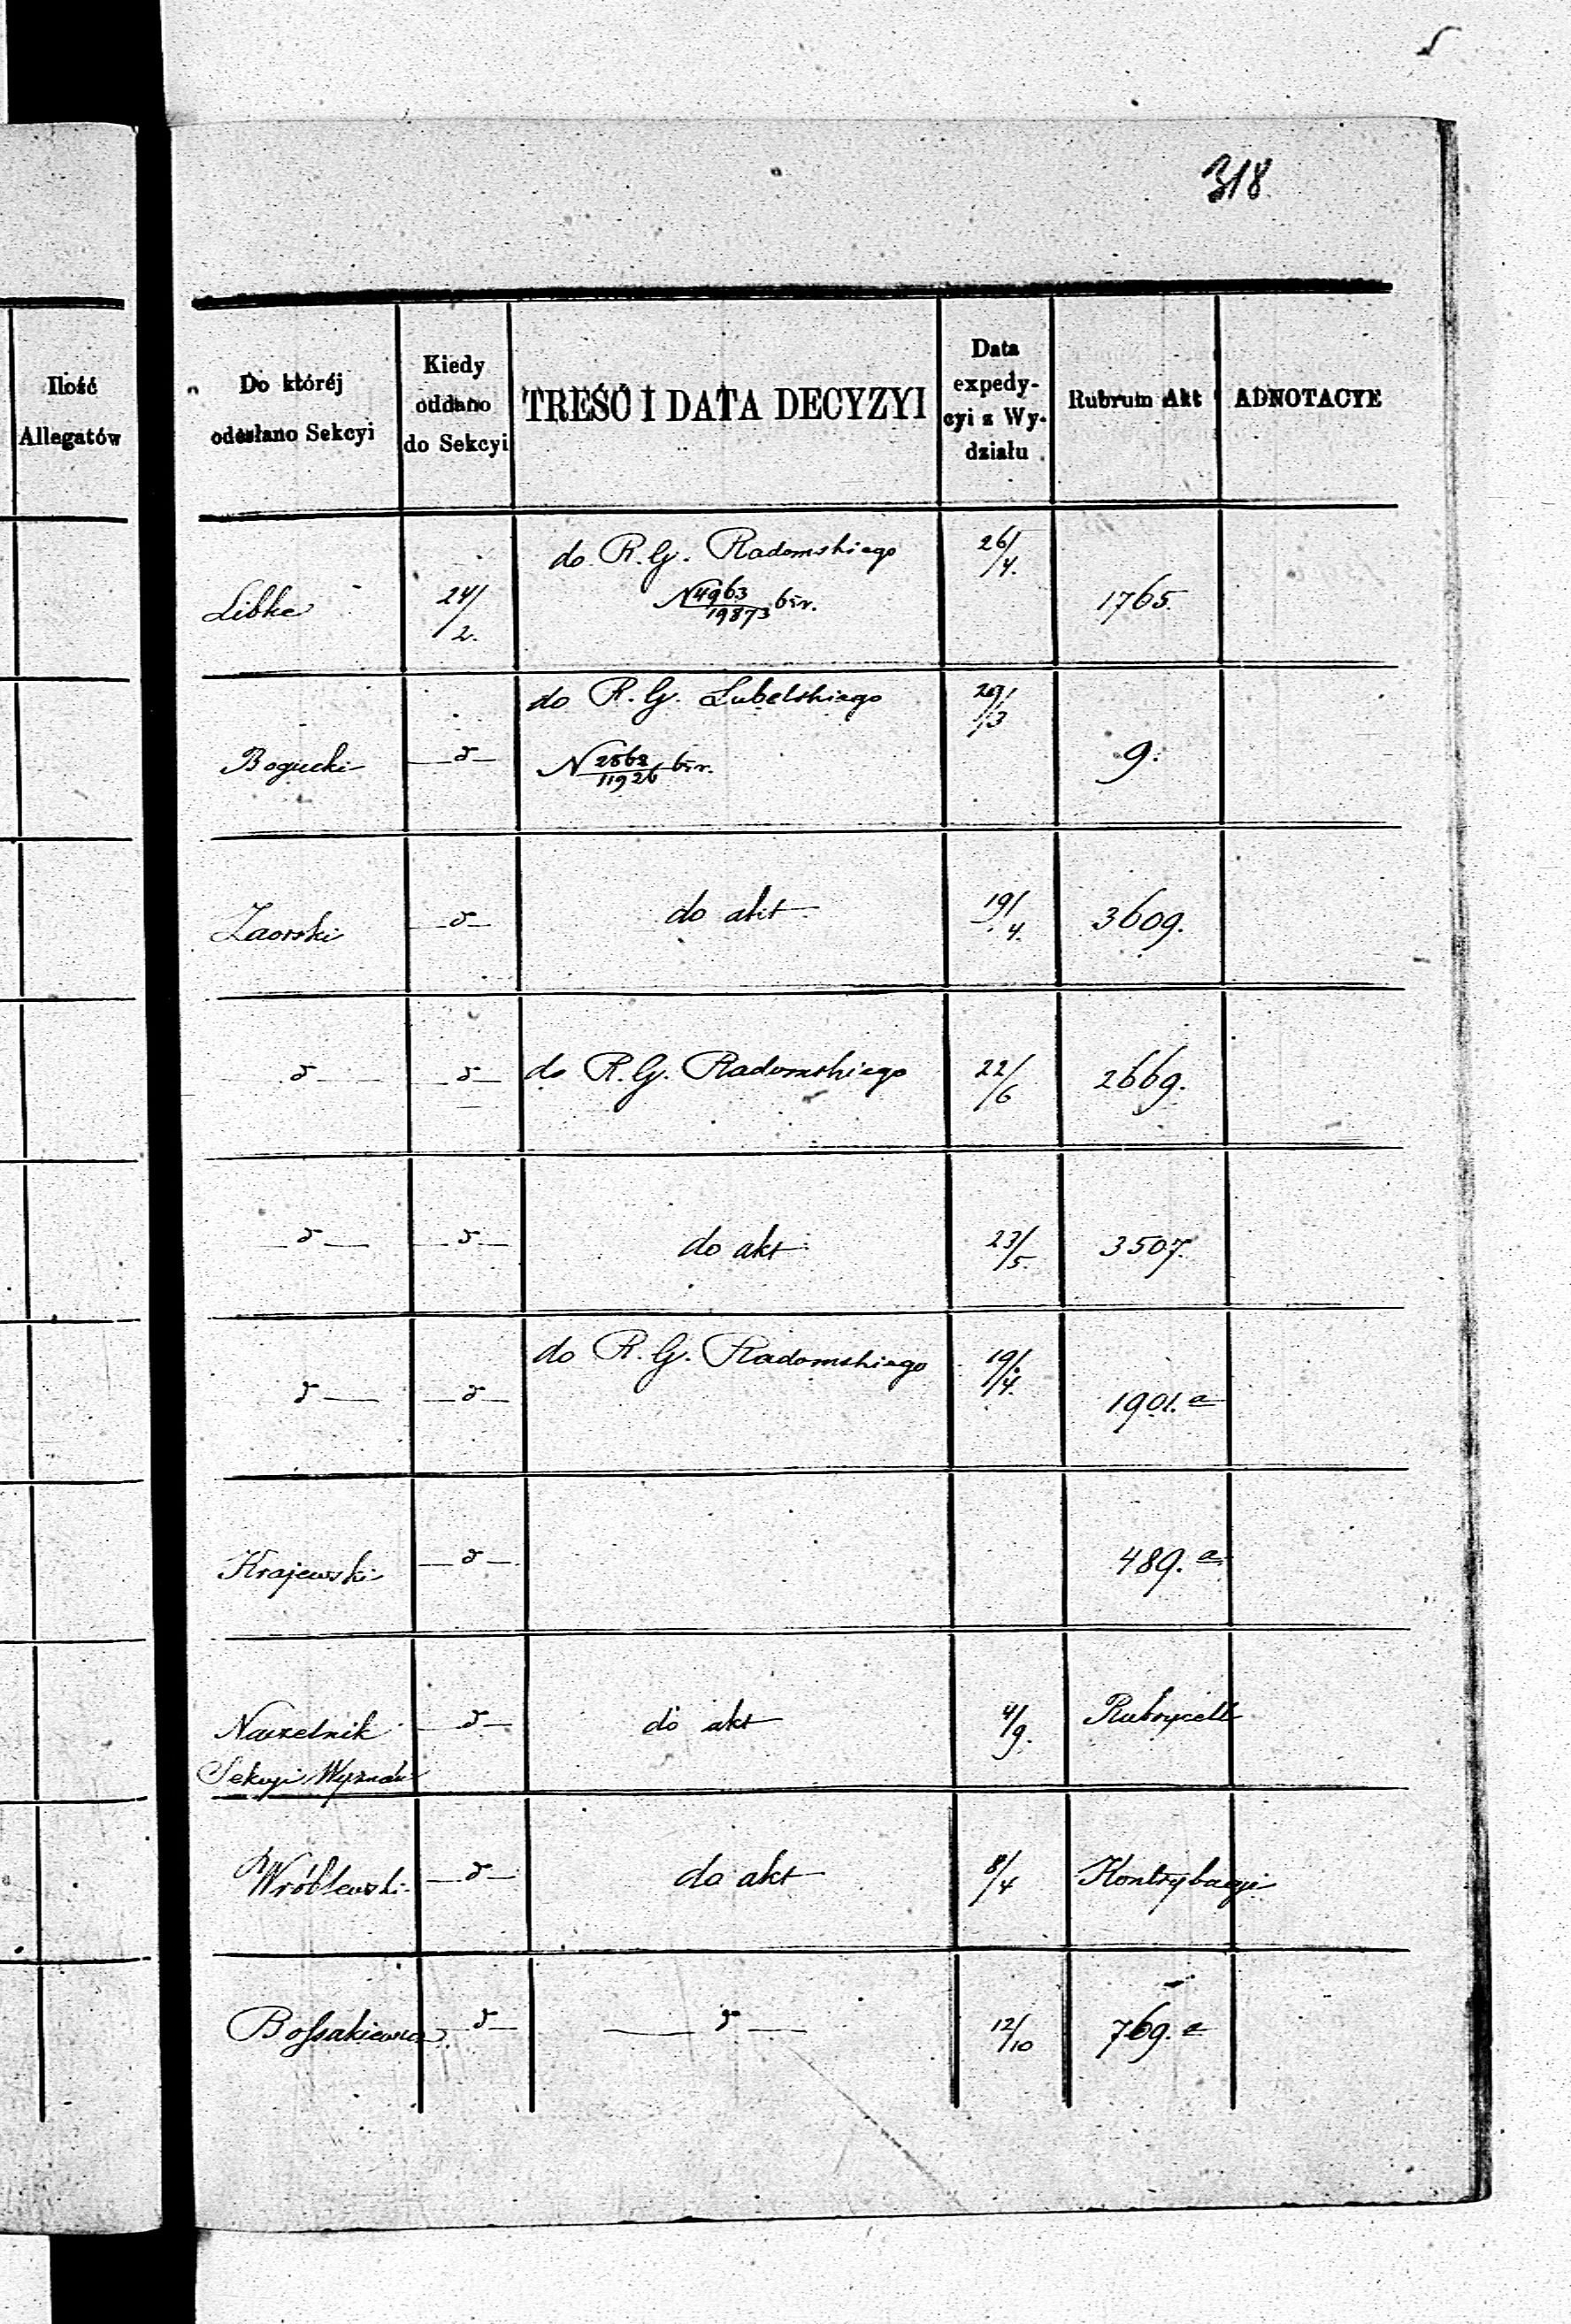 318.
Ilość
Allegatów
Do któréj
odesłano Sekcyi
Kiedy
oddano
do Sekcyi
TREŚĆ I DATA DECYZYI
Data
expedy-
cyi z Wy-
działu
Rubrum Akt
ADNOTACYE
Libke 24/2. do R. G. Radomskiego 26/4. 1765.
N 4963/19873
Bogucki d do R. G. Lubelskiego 29/3 9.
N 2868/11926
Zaorski d do akt 19/4. 3609.
d d do R. G. Radomskiego 22/6 2669.
d d do akt 23/5. 3507.
d d do R. G. Radomskiego 19/4. 1901. a
Krajewski d 489. a
Naczelnik d do akt 4/9. Rubrycell
Sekcyi Wyznań
Wróblewski d do akt 8/4 Kontrybucyi
Bossakiewicz d d 12/10 769. a